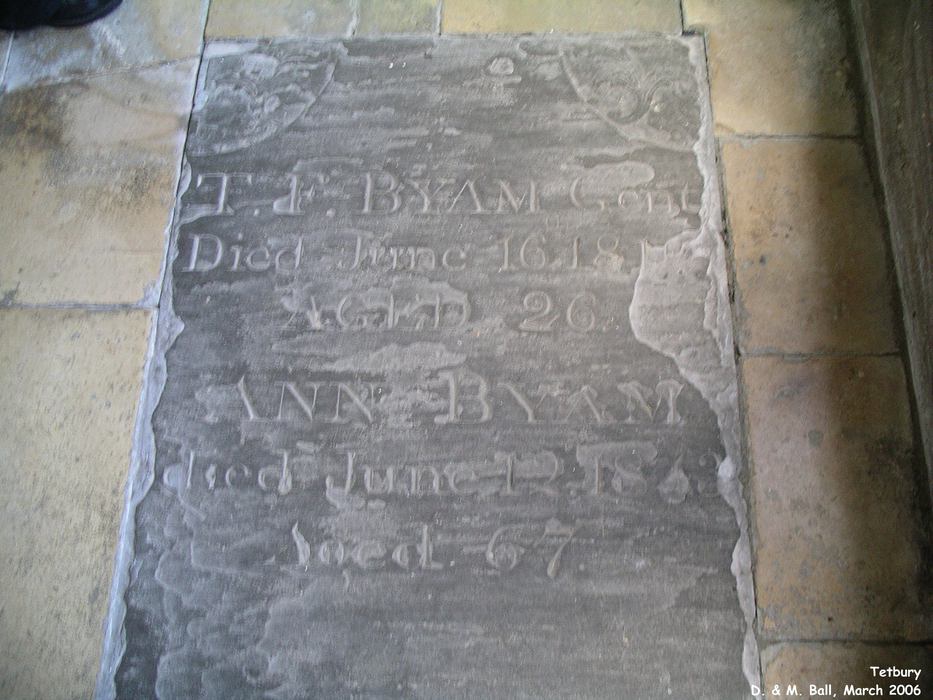 T. F. BYAM Gent
Died June 16. 18
AGED 26.
ANN BYAM
died June 12. 18
Aged 67.
Tetbury
D. & M. Ball, March 2006